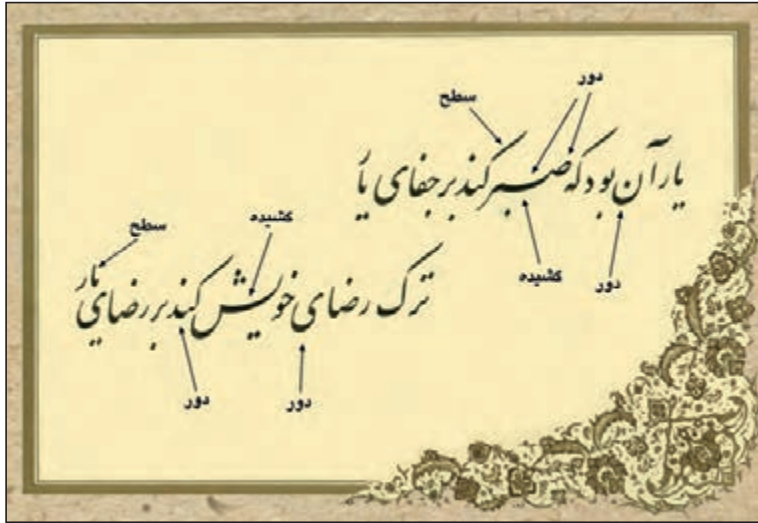 دور
سطح
یار آن بود که صبر کند بر جفای یار
کشیده
دور
کشیده
سطح
ترک رضای خویش کند بر رضای یار
دور
دور